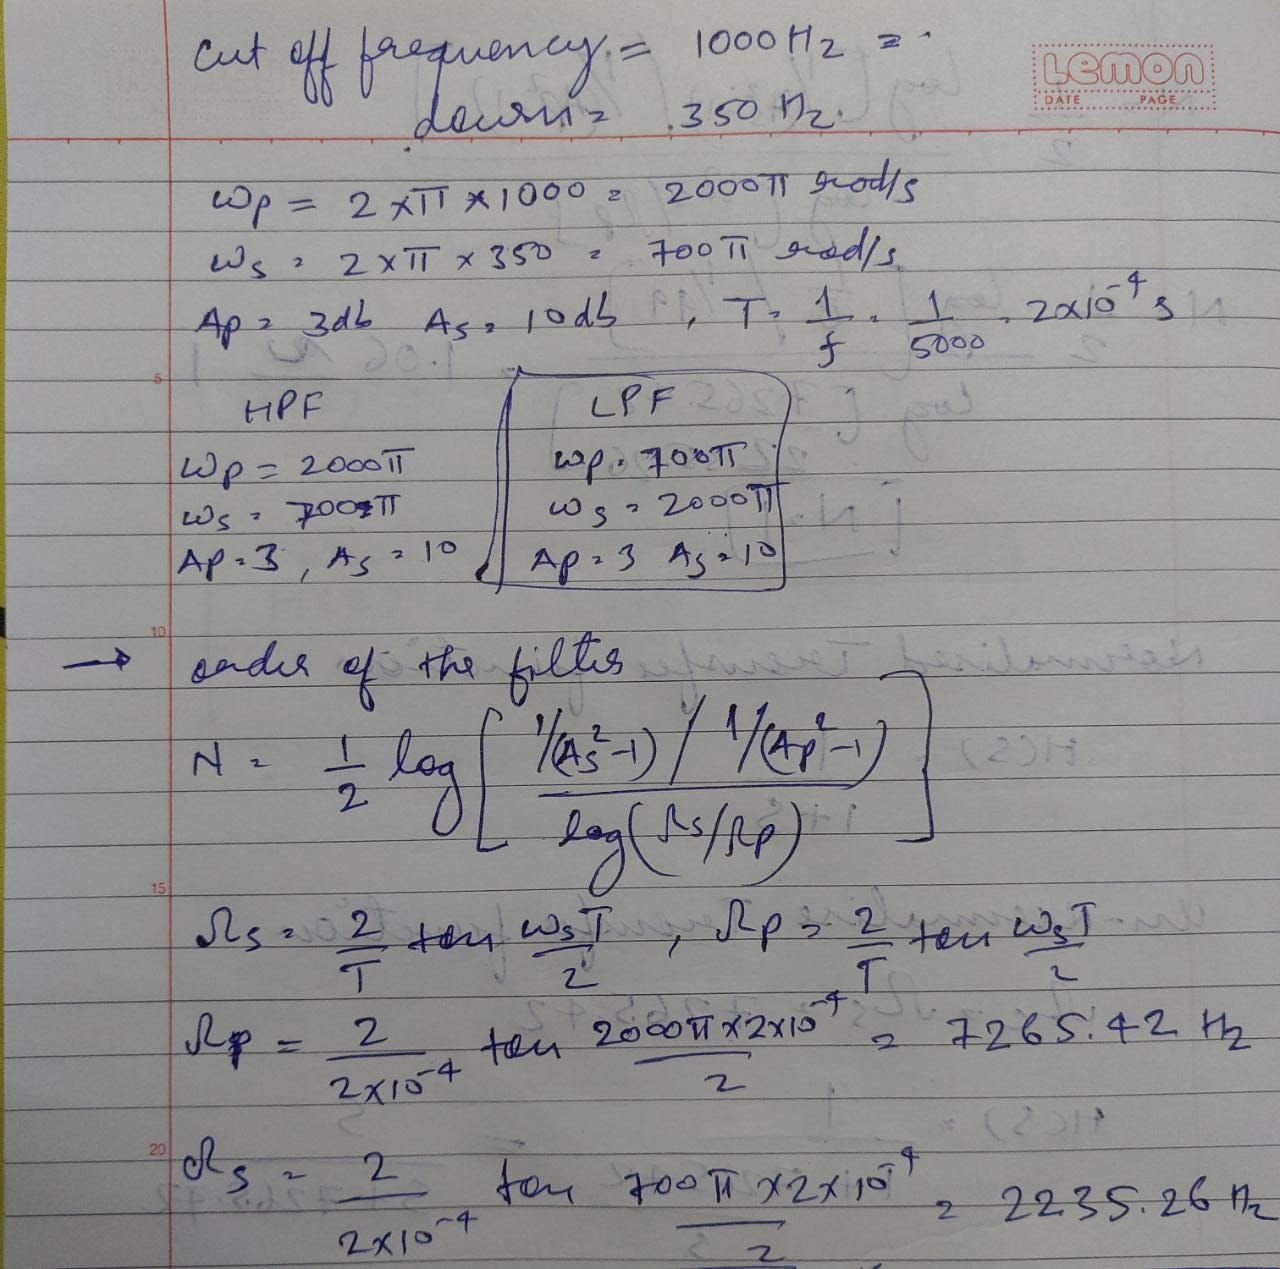 Cut off frequency = 1000 Hz =
down = 350 Hz.
Lemon
DATE PAGE
ωp = 2 × π × 1000 = 2000π rad/s
ωs = 2 × π × 350 = 700π rad/s
Ap = 3db As = 10db , T = 1/f = 1/5000 = 2×10⁻⁴ s
5
HPF LPF
ωp = 2000π ωp = 700π
ωs = 700π ωs = 2000π
Ap = 3 , As = 10 Ap = 3 As = 10
10
→ order of the filter
N = 1/2 log [ 1/(As²-1) / 1/(Ap²-1) / log(Ωs/Ωp) ]
15
Ωs = 2/T tan ωsT/2 , Ωp = 2/T tan ωsT/2
Ωp = 2/2×10⁻⁴ tan 2000π×2×10⁻⁴/2 = 7265.42 Hz
20
Ωs = 2/2×10⁻⁴ tan 700π×2×10⁻⁴/2 = 2235.26 Hz